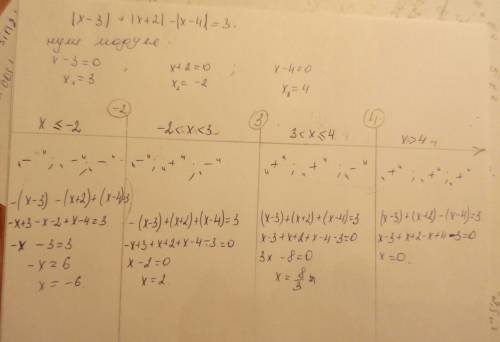 |x-3| + |x+2| - |x-4| = 3.
нули модуля.
x-3=0 ; x+2=0 ; x-4=0
x₁=3 x₂=-2 x₃=4
-2 3 4
x ≤ -2 -2<x<3 3<x≤4 x>4
„-“; „-“; „-“ „-“; „+“; „-“ „+“; „+“; „-“ „+“; „+“; „+“
-(x-3)-(x+2)+(x-4)=3
-x+3-x-2+x-4=3
-x-3=3
-x=6
x=-6.
-(x-3)+(x+2)+(x-4)=3
-x+3+x+2+x-4-3=0
x-2=0
x=2.
(x-3)+(x+2)+(x-4)=3
x-3+x+2+x-4-3=0
3x-8=0
x=8/3
(x-3)+(x+2)-(x-4)=3
x-3+x+2-x+4-3=0
x=0.